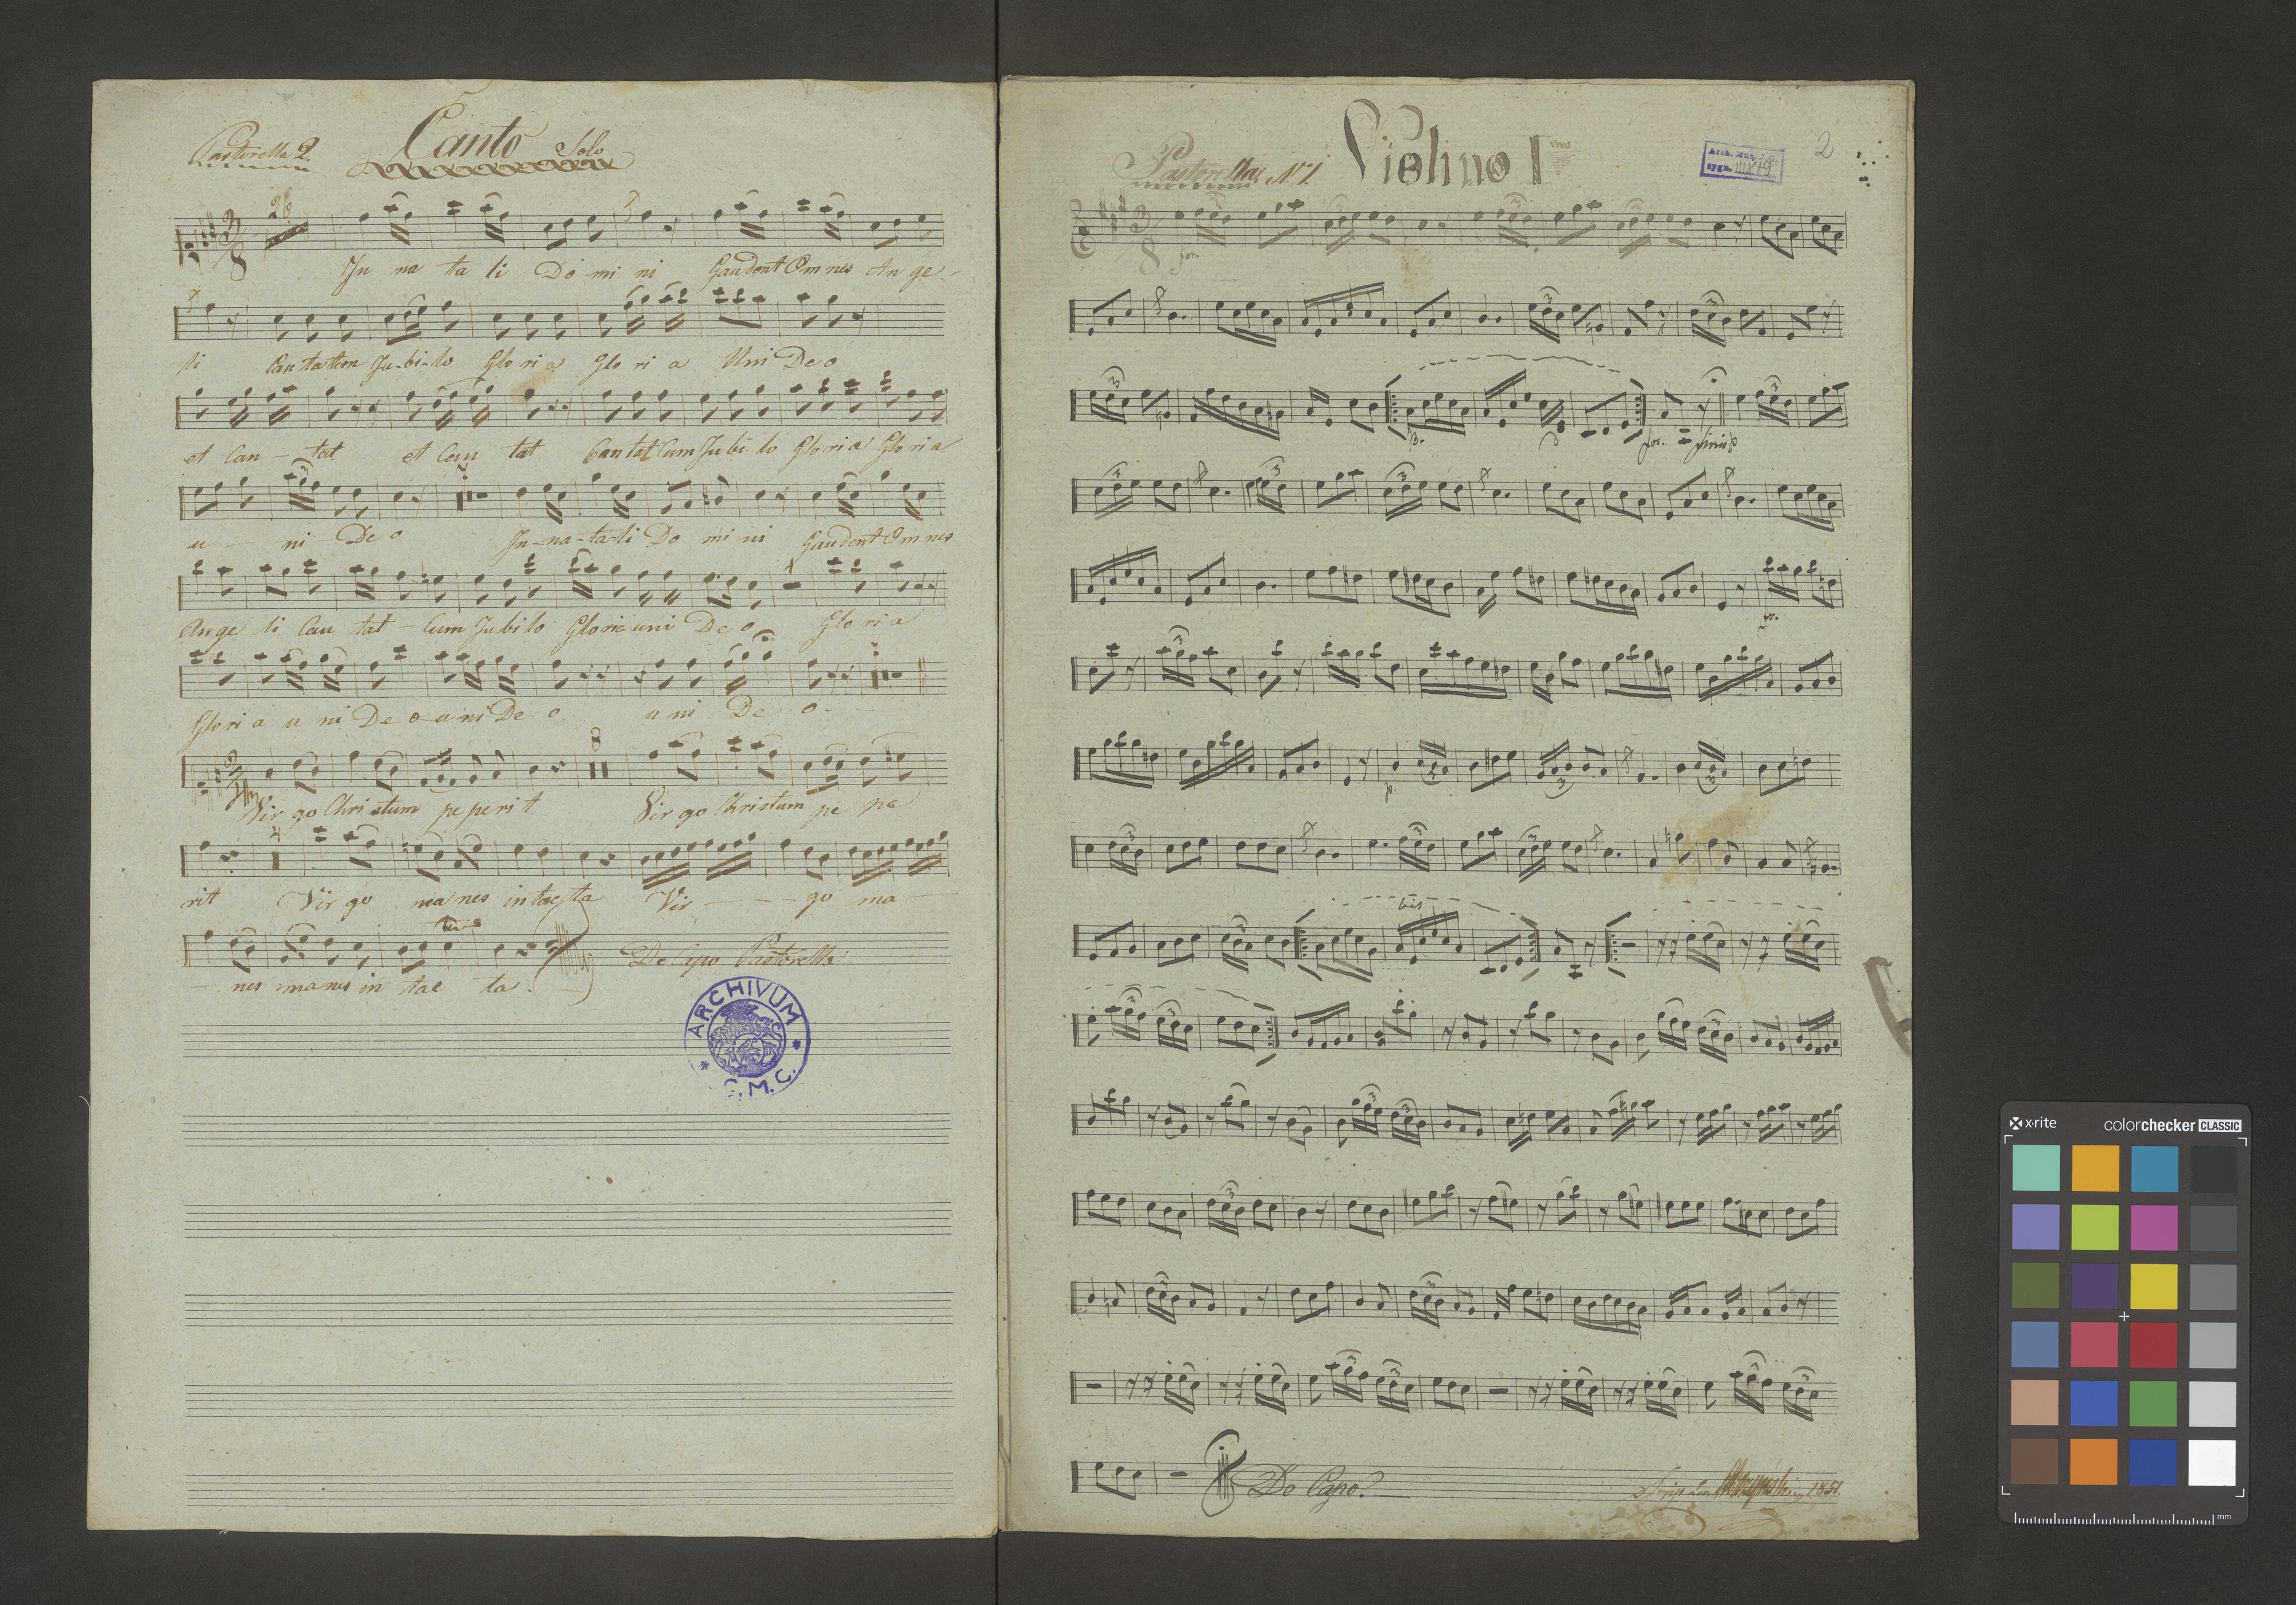 Pastorella 2. Canto Solo
26
In na ta li Do mi ni Gaudent Omnes An ge -
li Can tat Cum Ju-bi-lo Glo ri a Glo ri a Uni De o
et Can - tat et Can tat Can tat Cum Ju bi lo Glo ri a Glo ri a
u - ni - De o In-na-ta-li Do mi ni Gaudent Om nes
Ange li Can tat - Cum Ju bi lo Gloria uni De o Glo ri a
Glo ri a u ni De o u ni De o u ni De o.
8
Vir go Chri stum pe perit Vir go Christum pe pe
rit Vir go ma nes in tac ta Vir - - - go ma -
- nes manes in tac ta.
De Capo Pastorella
ARCHIVUM
.M.C.
Pastorella N 1. Violino I mo
Arch. Muz.
sygn. III
2
3
8
for.
p.
for. finis p
for.
p.
bis
De Capo.
1851
x-rite colorchecker CLASSIC
mm